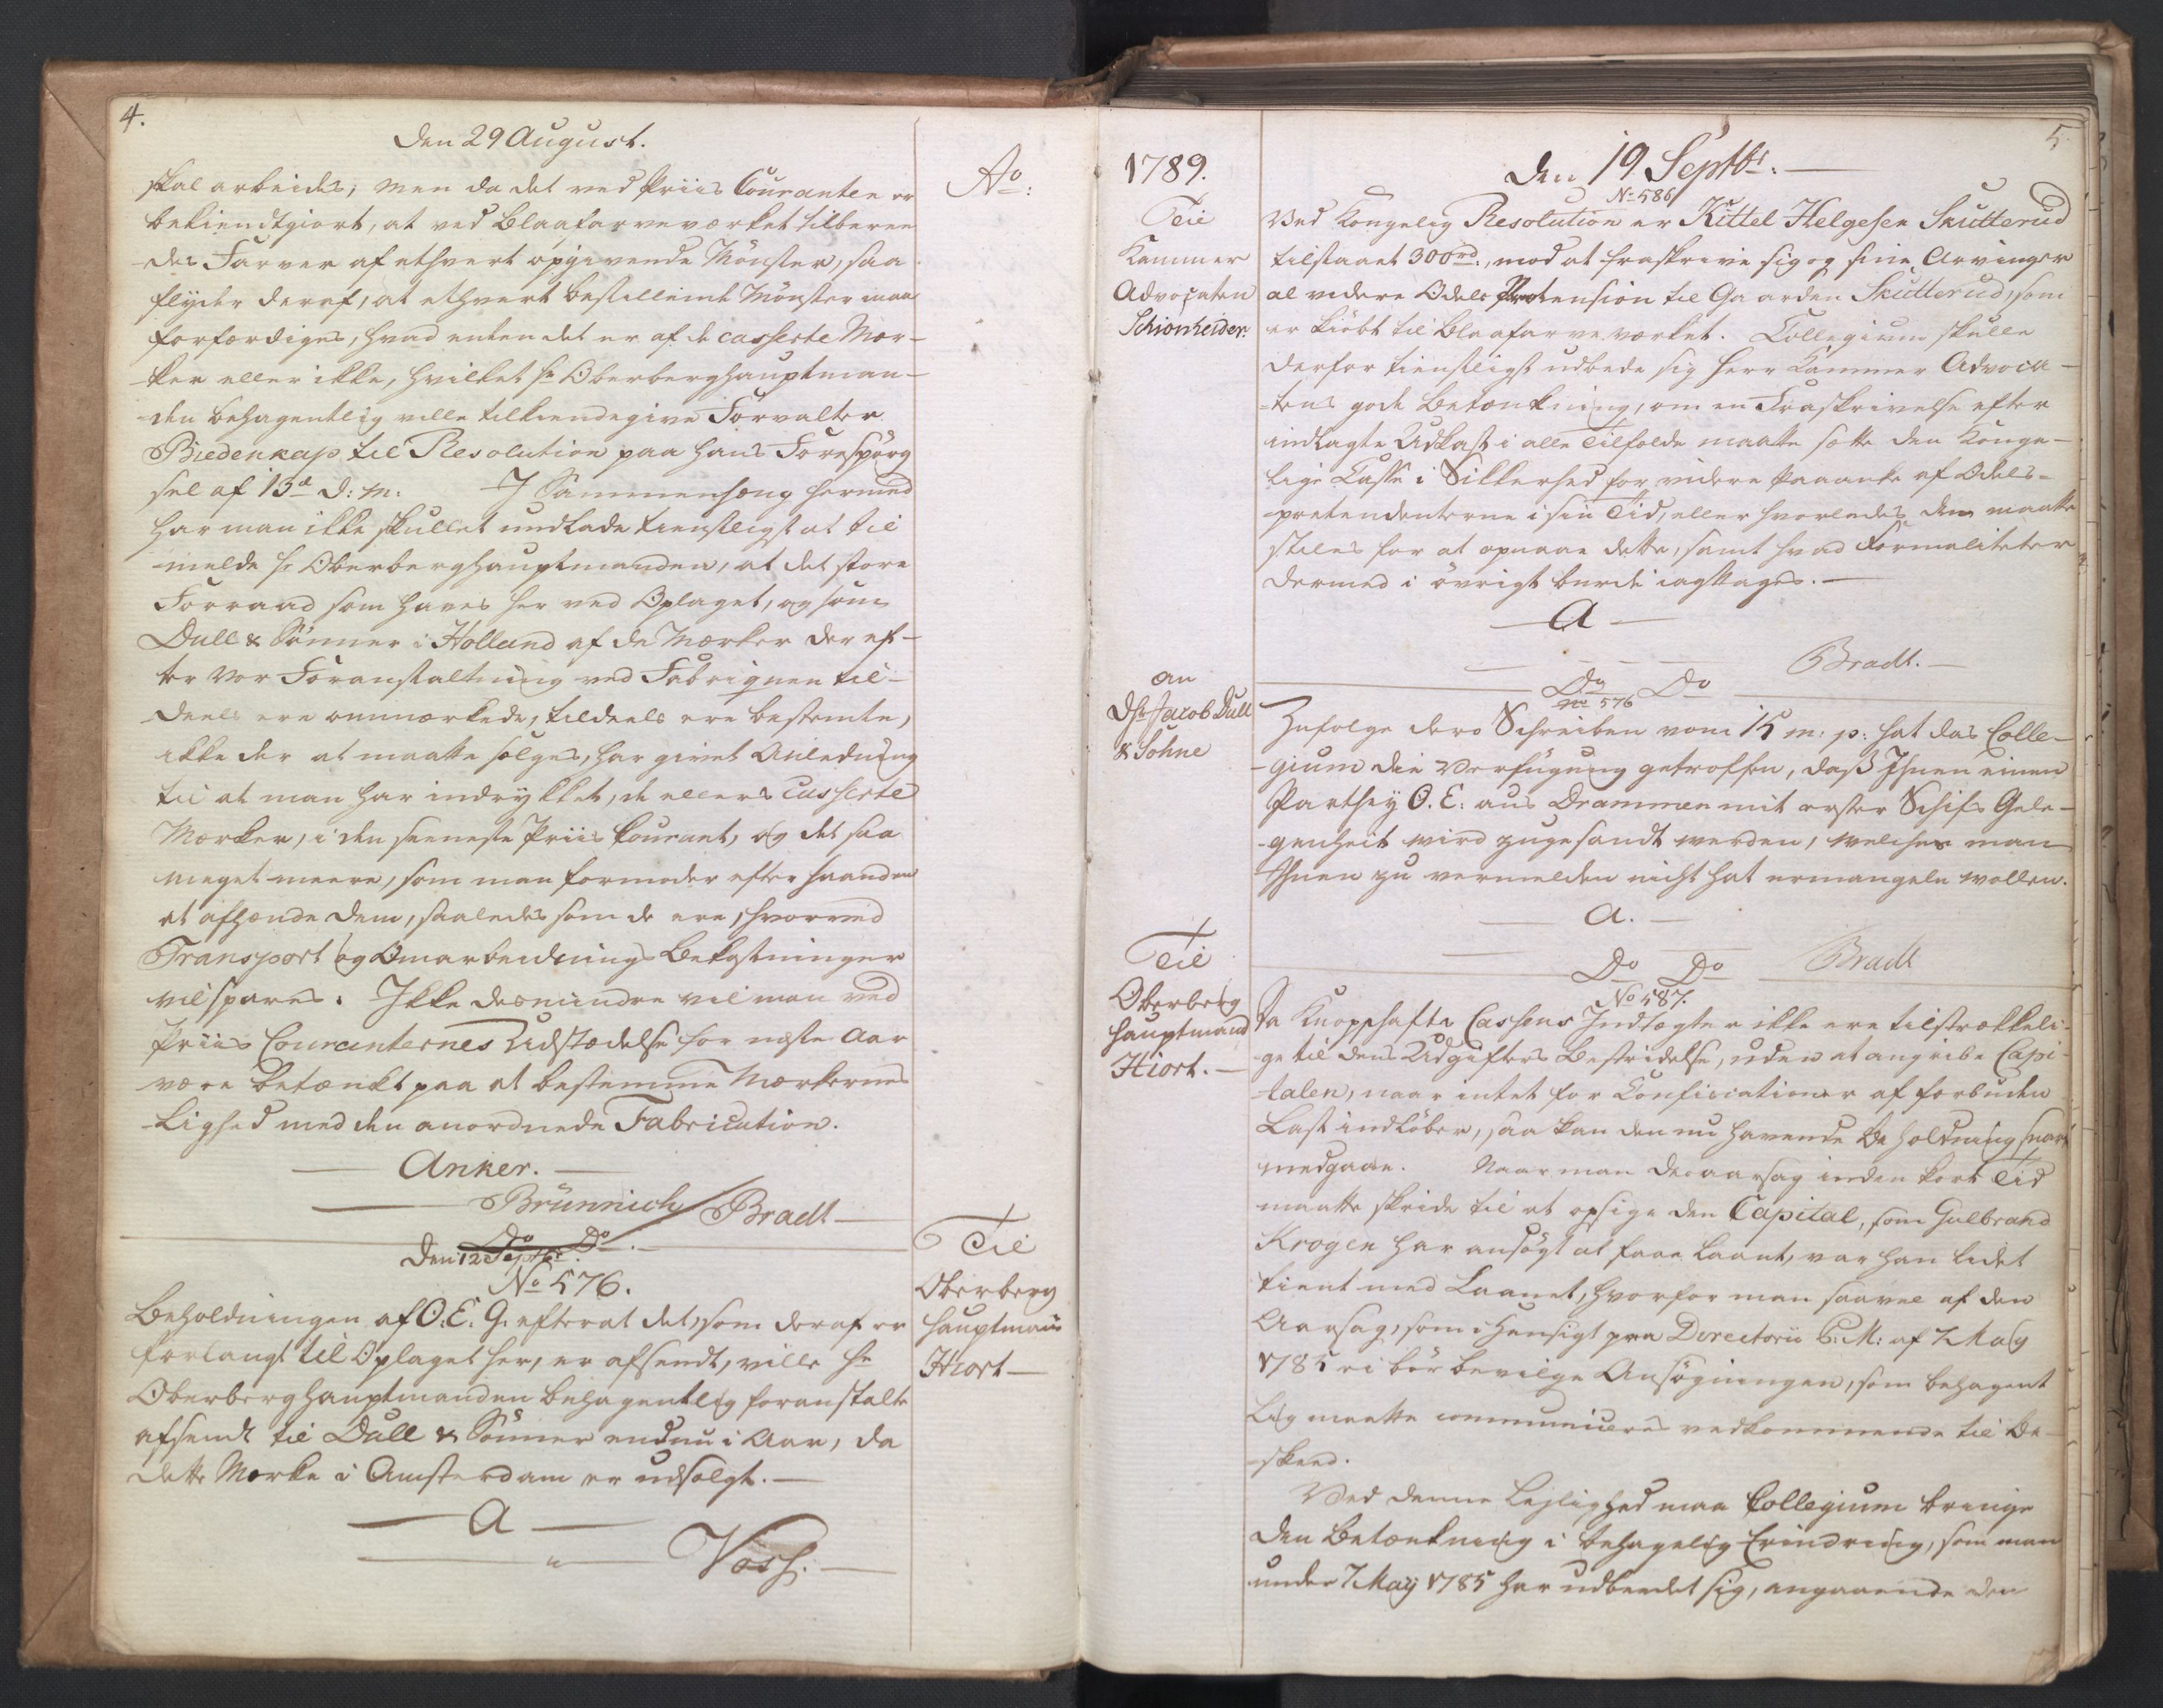 4.
Den 29 August.
skal arbeides; men da det ved Priis Couranten er
bekiendtgiort, at ved Blaafarveværket tilberee
des Farver af ethvert opgivende Mönster, saa
flyder deraf, at ethvert bestillende Mönster maae
forfærdiges, hvad enten det er af de casserte Mær-
ker eller ikke, hvilket Hr Oberberghauptman-
den behagentlig ville tilkiendegive Forvalter
Biedenkap til Resolution paa hans Forespörg
sel af 13d d: M: I Sammenhæng hermed
har man ikke skullet undlade tienstligst at til
melde Hr Oberberghauptmanden, at det store
Forraad som haves her ved Oplaget, og hos
Dull & Sönner i Holland af de Mærker der ef-
ter vor Foranstaltning ved Fabriquen til-
deels ere ommærkede, tildeels ere bestemte,
ikke der at maatte sælges, har givet Anledning
til at man har indrykket, de ellers casserte
Mærker, i den seeneste Priis Courant, og det saa
meget meere, som man formoder efter haanden
at afhænde dem, saaledes som de ere, hvorved
Transport og Omarbeidnings Bekostninger
vil spares. Ikke desmindre vil man ved
Priis Couranternes Udstædelse for næste Aar
være betænkt paa at bestemme Mærkernes
Lighed med den anordnede Fabrication.
Anker.
Brünnich / Bradt
Do Do
Den 12 Septbr.
No 576.
Beholdningen af O. E. G. efterat det, som deraf er
forlangt til Oplaget her, er afsendt, ville Hr
Oberberghauptmanden behagentlig foranstalte
afsendt til Dull & Sönner endnu i Aar, da
dette Mærke i Amsterdam er udsolgt.
A
Vosf.
Ao:
Til
Oberberg
hauptman
Hiort
1789.
Til
Kammer
Advocaten
Schionheider.
an
dhr Jacob Dull
& Sohne
Til
Oberberg
hauptmand
Hiort.
5.
Den 19 Septbr.
No 586
Ved Kongelig Resolution er Kittel Helgesen Skutterud
tilstaaet 300rd., mod at fraskrive sig og sine Arvinger
al videre Odels Prætension til Gaarden Skutterud, som
er kiöbt til Blaafarveværket. Collegium skulle
derfor tienstligst udbede sig Herr Kammer Advoca-
tens gode Betænkning, om en Fraskrivelse efter
indlagte Udkast i alle Tilfælde maatte sætte den Konge-
lige Casse i Sikkerhed for videre Paaanke af Odels-
prætendenterne i sin Tid, eller hvorledes den maatte
stiles for at opnaae dette, samt hvad Formaliteter
dermed i övrigt burde iagttages.
A
Bradt.
Do Do
No 576
Zufolge dero Schreiben vom 15 m: p: hat das Colle-
gium die Verfügung getroffen, daß Ihnen einen
Parthey O. E: aus Drammen mit erster Schifs Gele-
genheit wird zugesandt werden, welches man
Ihnen zu vermelden nicht hat ermangeln wollen.
A.
Bradt
Do Do
No 587.
Da Knappschafts Cassens Indtægter ikke ere tilstrækkeli-
ge til dens Udgifters Bestridelse, uden at angribe Capi-
talen, naar intet for Confiscationer af forbuden
Last indlöber, saa kan den nu havende Beholdning snart
medgaae. Naar man desaarsag inden kort Tid
maatte skride til at opsige den Capital, som Gulbrand
Krogen har ansögt at faae laant, var han lidet
tient med Laanet, hvorfor man saavel af den
Aarsag, som i Hensigt paa Directorii P: M: af 7 May
1785 ei bör bevilge Ansögningen, som behagent
lig maatte communiceres vedkommende til Be-
skeed.
Ved denne Leilighed maa Collegium bringe
den Betænkning i behagelig Erindring, som man
under 7 May 1785 har udbedet sig, angaaende den